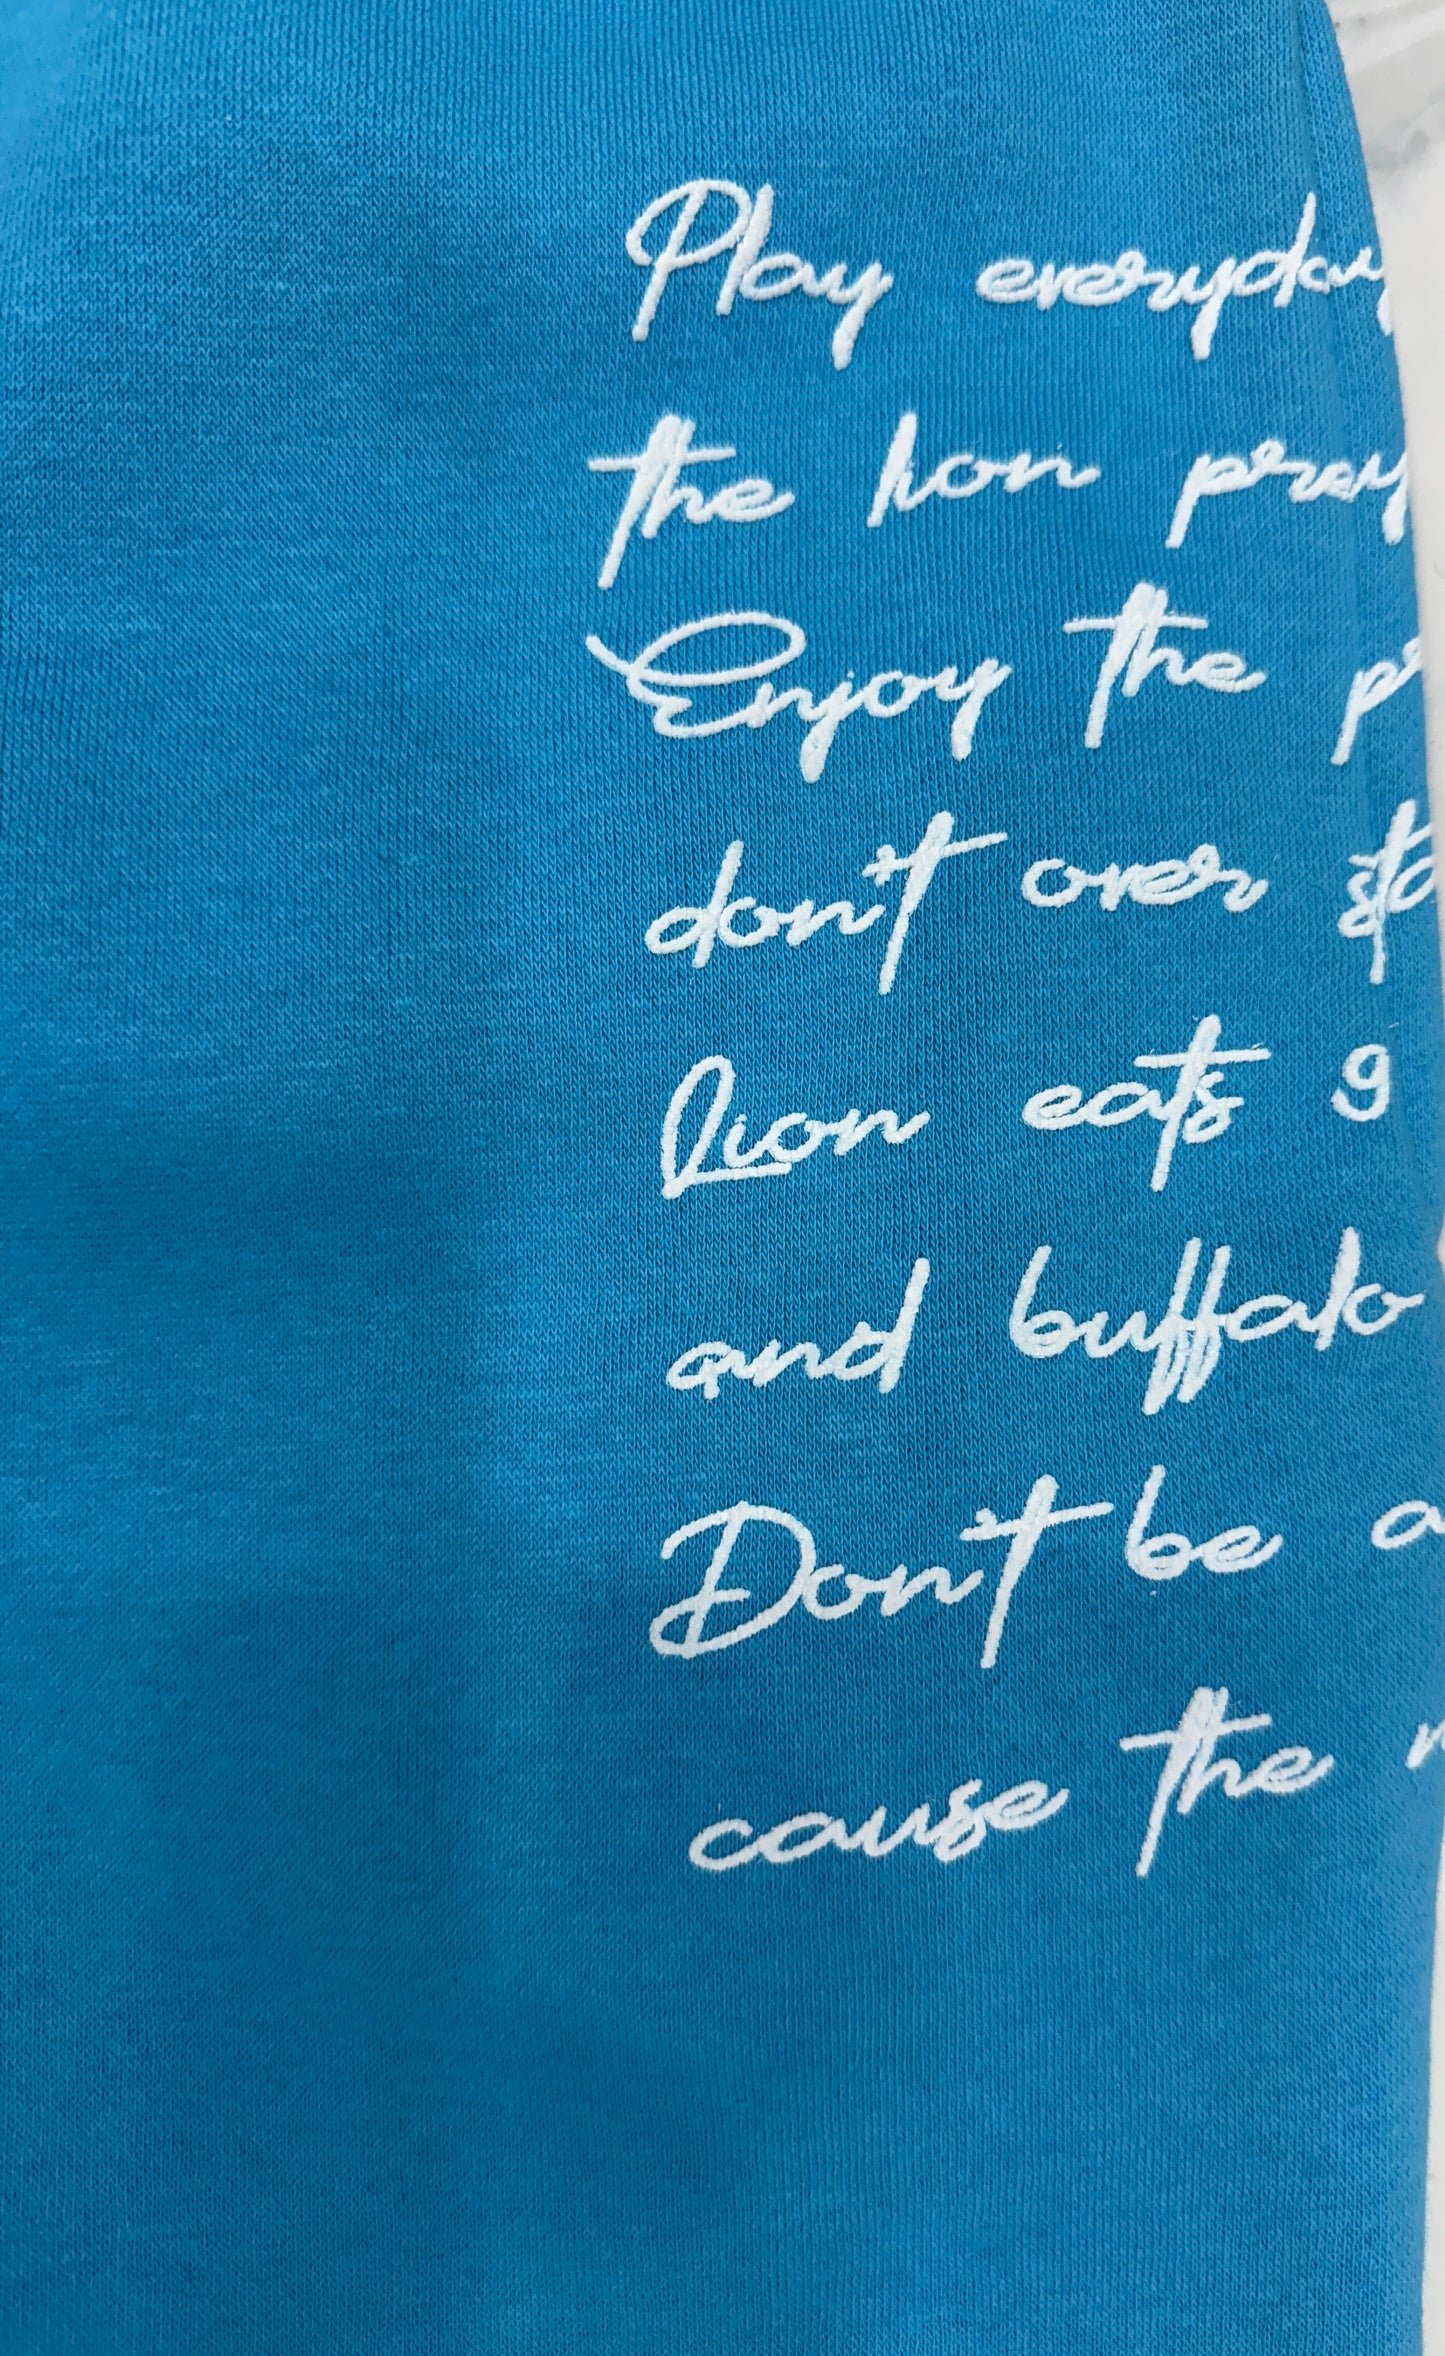 Play everyday
the lion pray
Enjoy the
don't over
Lion eats 9
and buffalo
Don't be
cause the